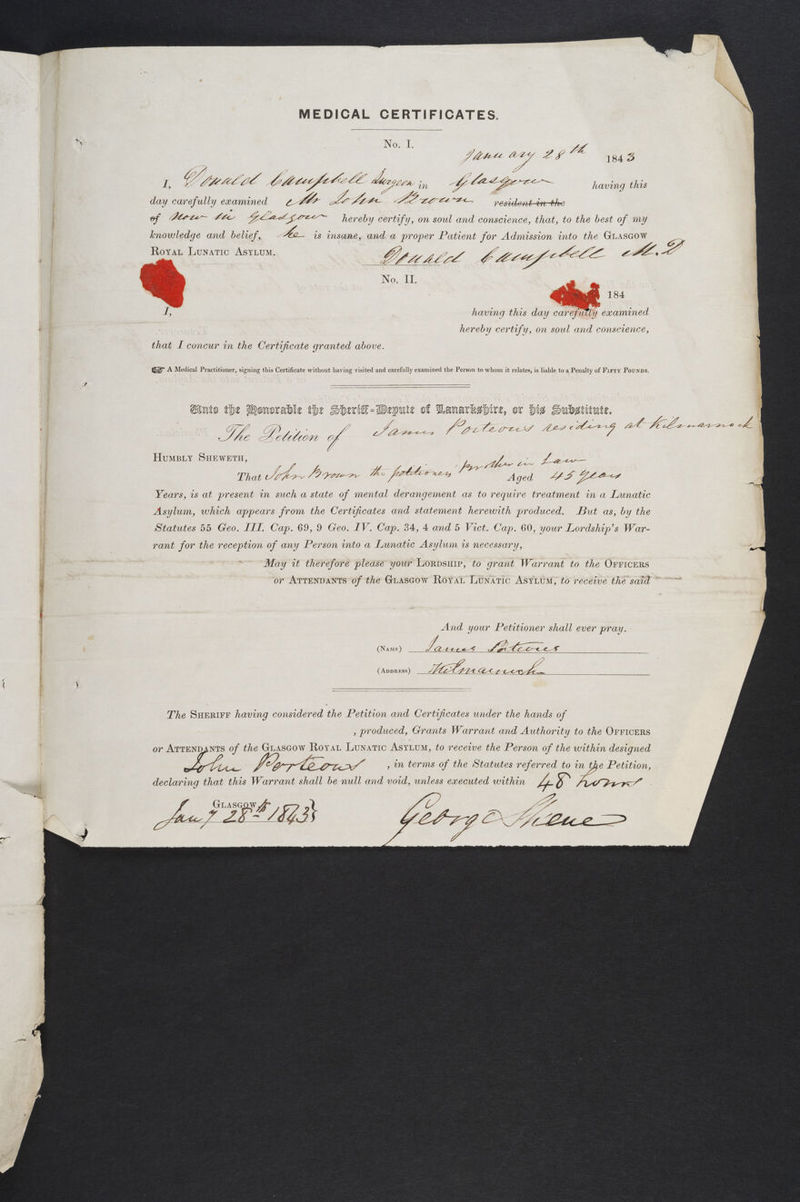 MEDICAL CERTIFICATES.
No. I.
January 28th 1843
I, Donald Campbell Surgeon in Glasgow having this
day carefully examined Mr John Brown resident in the
of now in Glasgow hereby certify, on soul and conscience, that, to the best of my
knowledge and belief, he is insane, and a proper Patient for Admission into the GLASGOW
ROYAL LUNATIC ASYLUM. Donald Campbell M.D
No. II.
184
I, having this day carefully examined
hereby certify, on soul and conscience,
that I concur in the Certificate granted above.
☞ A Medical Practitioner, signing this Certificate without having visited and carefully examined the Person to whom it relates, is liable to a Penalty of FIFTY POUNDS.
Unto the Honorable the Sheriff-Depute of Lanarkshire, or his Substitute.
The Petition of James Porteous residing at Kilmarnock
HUMBLY SHEWETH,
That John Brown the petitioners brother in Law Aged 45 years
Years, is at present in such a state of mental derangement as to require treatment in a Lunatic
Asylum, which appears from the Certificates and statement herewith produced. But as, by the
Statutes 55 Geo. III. Cap. 69, 9 Geo. IV. Cap. 34, 4 and 5 Vict. Cap. 60, your Lordship's War-
rant for the reception of any Person into a Lunatic Asylum is necessary,
May it therefore please your LORDSHIP, to grant Warrant to the OFFICERS
or ATTENDANTS of the GLASGOW ROYAL LUNATIC ASYLUM, to receive the said
And your Petitioner shall ever pray.
(NAME) James Porteous
(ADDRESS) Kilmarnock
The SHERIFF having considered the Petition and Certificates under the hands of
, produced, Grants Warrant and Authority to the OFFICERS
or ATTENDANTS of the GLASGOW ROYAL LUNATIC ASYLUM, to receive the Person of the within designed
John Porteous , in terms of the Statutes referred to in the Petition,
declaring that this Warrant shall be null and void, unless executed within 48 hours
GLASGOW
Jany 28th 1843 George Skene